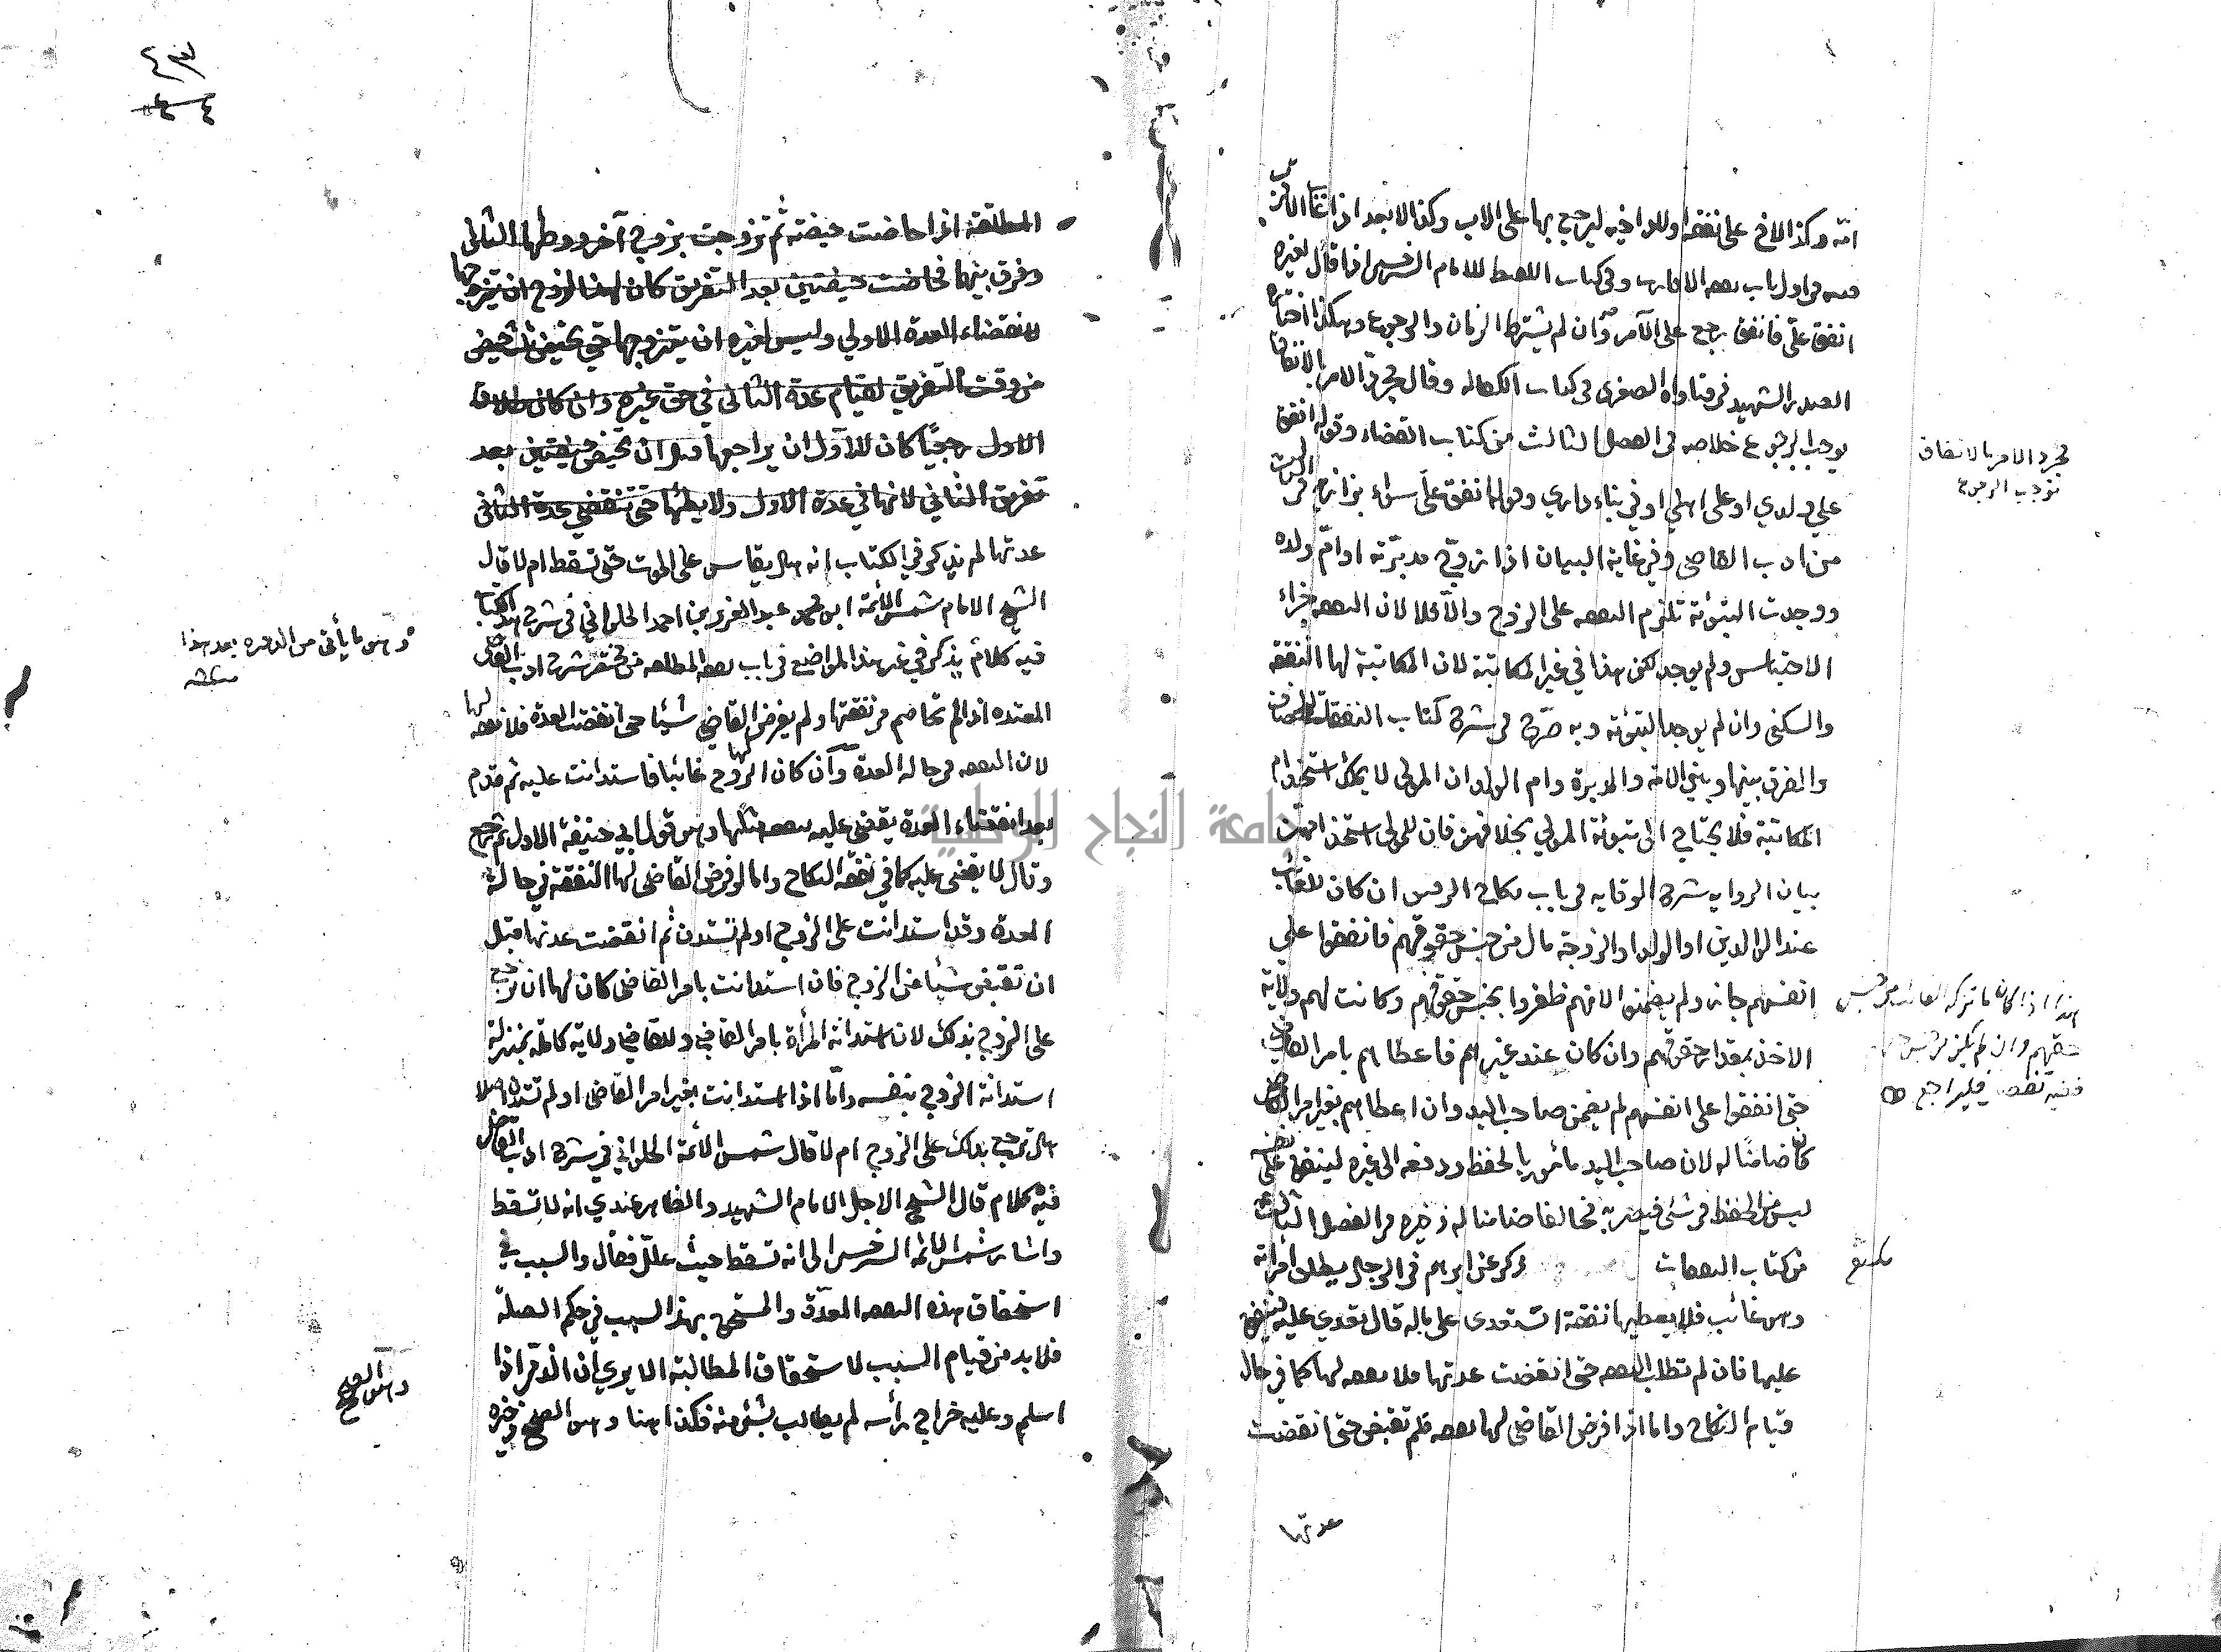 امه وكذا الاخ على نفقة اولاد اخيه ليرجع بها على الاب وكذا الابعد اذا غاب الاقرب
من اول باب نفقة الاقارب وفي كتاب اللقيط للامام السرخسي اذا قال لغيره
انفق علي فانفق رجع على الآمر وان لم يشترط الرجوع وهكذا اختاره
الصدر الشهيد في فتاواه الصغرى في كتاب الكفالة وقال مجرد الامر بالانفاق
يوجب الرجوع خلاصه في الفصل الثالث من كتاب القضاء وقوله انفق
على ولدي او على اهلي او في بناء داري وقوله انفق علي سواء بزازيه في
من ادب القاضي وفي غاية البيان اذا زوج مدبرته او ام ولده
ووجدت التبوئة تلزم النفقه على الزوج والا فلا لان النفقه جزاء
الاحتباس ولم يوجد لكن هذا في غير المكاتبة لان المكاتبة لها النفقة
والسكنى وان لم يوجد التبوئة وبه صرح في شرح كتاب النفقات للخصاف
والفرق بينها وبين الامة والمدبرة وام الولد ان المولى لا يملك استخدام
المكاتبة فلا يحتاج الى تبوئة المولى بخلافهن فان للمولى استخدامهن
بيان الروايه شرح الوقايه في باب نكاح الرقيق ان كان للغائب
عند الوالدين او الولد او الزوجة مال من جنس حقوقهم فانفقوا على
انفسهم جاز ولم يضمنوا لانهم ظفروا بجنس حقوقهم وكانت لهم ولاية
الاخذ بمقدار حقوقهم وان كان عند غيرهم فاعطاهم بامر القاضي
حتى انفقوا على انفسهم لم يضمن صاحب اليد وان اعطاهم بغير امر القاضي
كان ضامنا له لان صاحب اليد مأمور بالحفظ ودفعه الى غيره لينفق على نفسه
ليس من الحفظ في شئ فيصير به مخالفا ضامنا له ذخيره من الفصل الثالث
من كتاب النفقات ذكر عن ابرهم في الرجل يطلق امرأته
وهو غائب فلا يعطيها نفقة استعدى على ماله قال تعدي عليه
عليها فان لم تطلب النفقه حتى انقضت عدتها فلا نفقه لها كما في حال
قيام النكاح واما اذا فرض القاضي لها نفقه فلم تقبض حتى انقضت
عدتها
مجرد الامر بالانفاق
توجب الرجوع
هذا اذا كان ما تركه الغائب من جنس
حقهم وان لم يكن من جنس
ففيه تفصيل فليراجع
المطلقة اذا حاضت حيضة ثم تزوجت بزوج آخر ووطئها الثاني
وفرق بينهما فحاضت حيضتين بعد التفريق كان لهذا الزوج ان يتزوجها
لانقضاء العدة الاولى وليس لغيره ان يتزوجها حتى تحيض ثلث حيض
من وقت التفريق لقيام عدة الثاني في حق غيره وان كان طلاق
الاول رجعيا كان للاول ان يراجعها قبل ان تحيض حيضتين بعد
تفريق الثاني لانها في عدة الاول ولا يطئها حتى تنقضي عدة الثاني
عدتها لم يذكر في الكتاب انه هل يقاس على الموت حتى تسقط ام لا قال
الشيخ الامام شمس الأئمة ابو محمد عبد العزيز بن احمد الحلواني في شرح هذا الكتاب
فيه كلام يذكر في غير هذا الموضع في باب نفقه المطلقه من مختصر شرح ادب القاضي
المعتده اذا لم تخاصم في نفقتها ولم يفرض القاضي شيئا حتى انقضت العدة فلا نفقه لها
لان النفقه لها في حالة العدة وان كان الزوج غائبا فاستدانت عليه ثم قدم
بعد انقضاء العدة يقضى عليه بنفقه مثلها وهو قول ابي حنيفة الاول ثم رجع
وقال لا يقضى عليه كما في نفقة النكاح واما لو فرض القاضي لها النفقة في حالة
العدة وقد استدانت على الزوج او لم تستدن ثم انقضت عدتها قبل
ان تقبض شيئا من الزوج فان استدانت بامر القاضي كان لها ان ترجع
على الزوج بذلك لان استدانة المرأة بامر القاضي وللقاضي ولاية كاملة بمنزلة
استدانة الزوج بنفسه واما اذا استدانت بغير امر القاضي او لم تستدن اصلا
هل ترجع بذلك على الزوج ام لا قال شمس الأئمة الحلواني في شرح ادب القاضي
فيه كلام قال الشيخ الاجل الامام الشهيد والظاهر عندي انه لا تسقط
واشار شمس الائمة السرخسي الى انه تسقط حيث علل فقال والسبب في
استحقاق هذه النفقه العدة والمستحق بهذا السبب في حكم الصلة
فلا بد من قيام السبب لاستحقاق المطالبة الا يرى ان الذمي اذا
اسلم وعليه خراج رأسه لم يطالب بشئ منه فكذا هنا وهو الصحيح ذخيره
وهو الصحيح
جامعة النجاح الوطنية